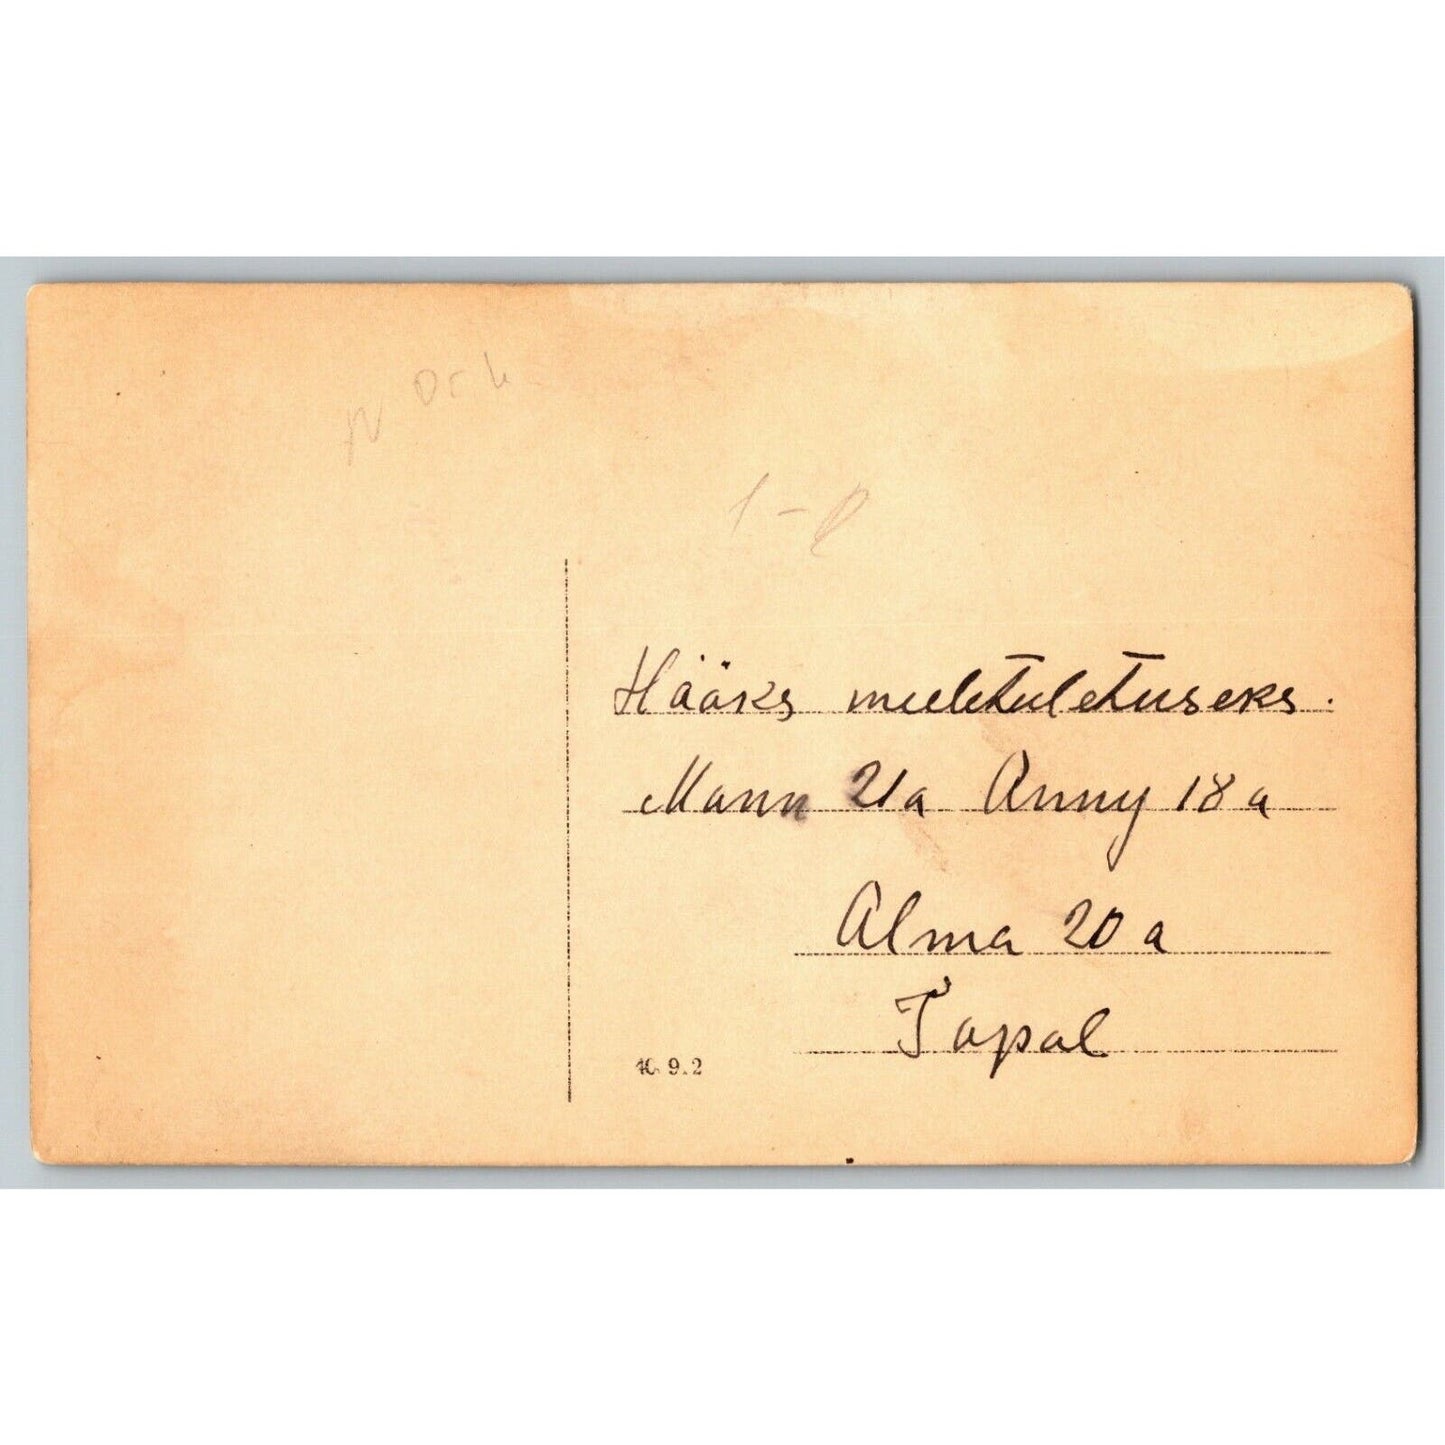 Hääks meeletuletuseks.
Mann 21a Anny 18a
Alma 20a
Tapal
9.2